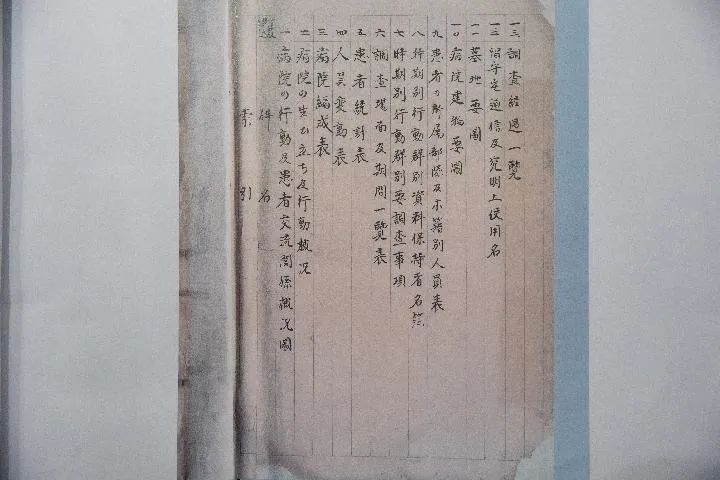 索引
件名
一 病院の行動及患者交流関係概況図
二 病院の生い立ち及行動概況
三 病院編成表
四 人員変動表
五 患者統計表
六 調査場面及期間一覧表
七 時期別行動群別要調査事項
八 時期別行動群別資料保持者名簿
九 患者の所属部隊及本籍別人員表
一〇 病院建物要図
一一 墓地要図
一二 留守宅通信及究明上使用名
一三 調査経過一覧